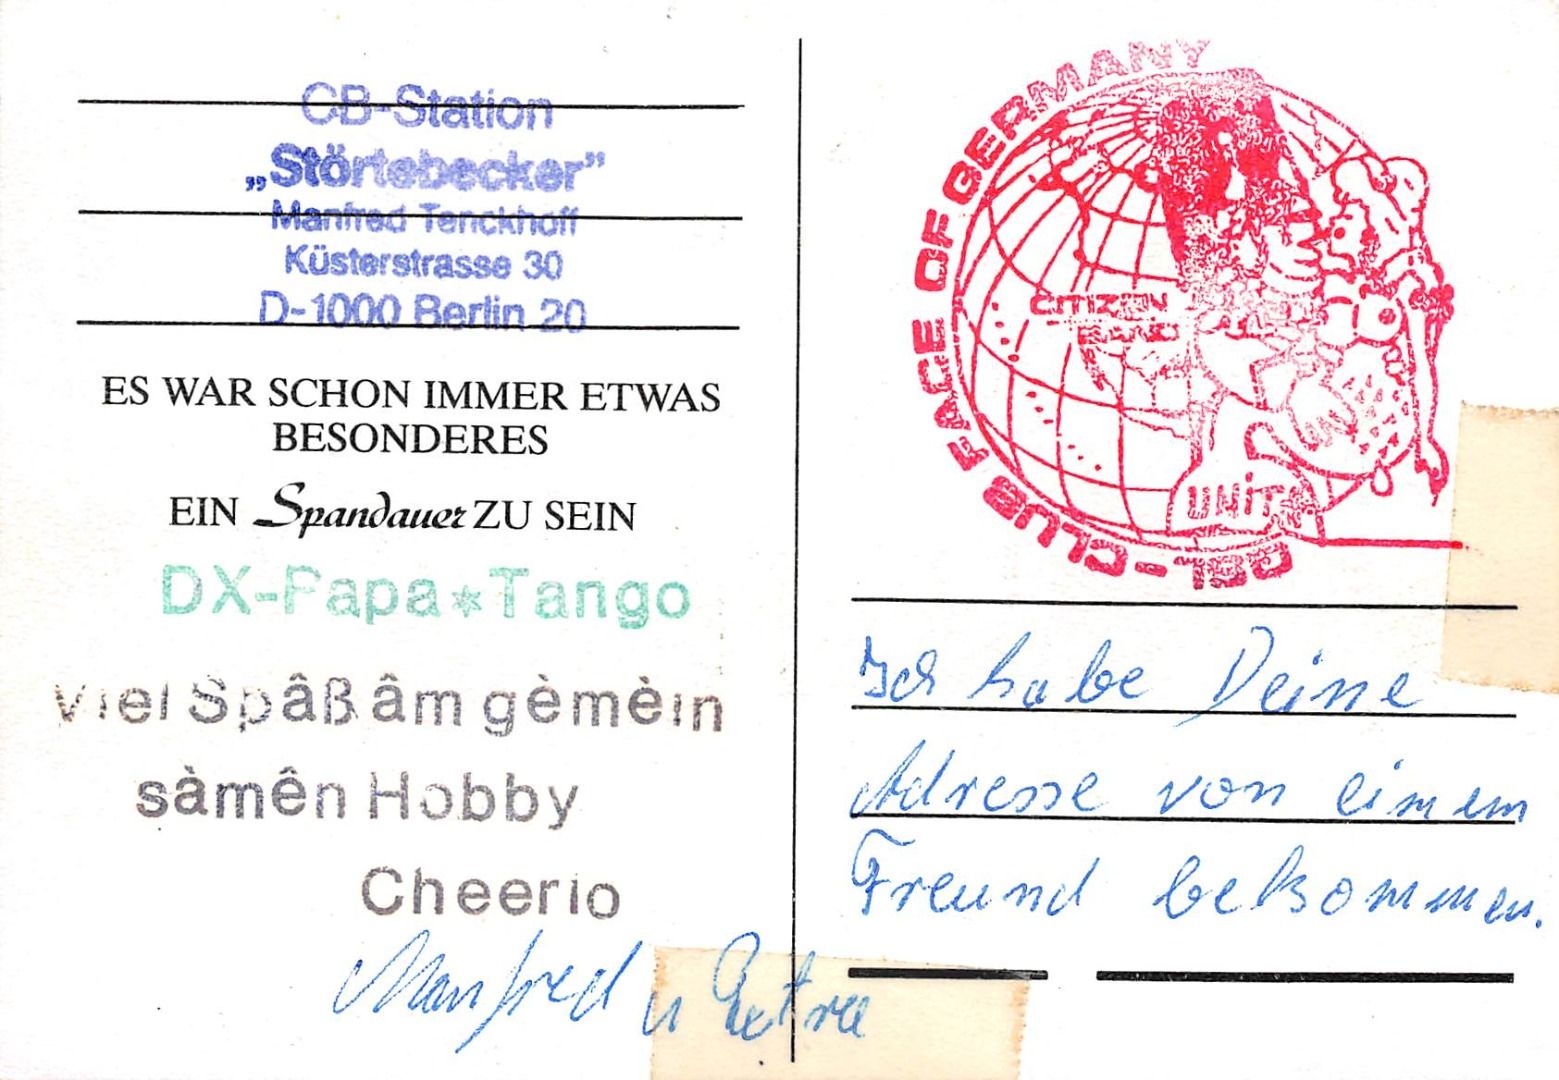 CB-Station
„Störtebecker”
Manfred Tenckhoff
Küsterstrasse 30
D-1000 Berlin 20
ES WAR SCHON IMMER ETWAS
BESONDERES
EIN Spandauer ZU SEIN
DX-Papa*Tango
Viel Spâß âm gèmèin
sàmên Hobby
Cheerio
Manfred u
QSL-CLUB FACE OF GERMANY
CITIZEN
BAND
UNiTA
Ich habe Deine
Adresse von einem
Freund bekommen.